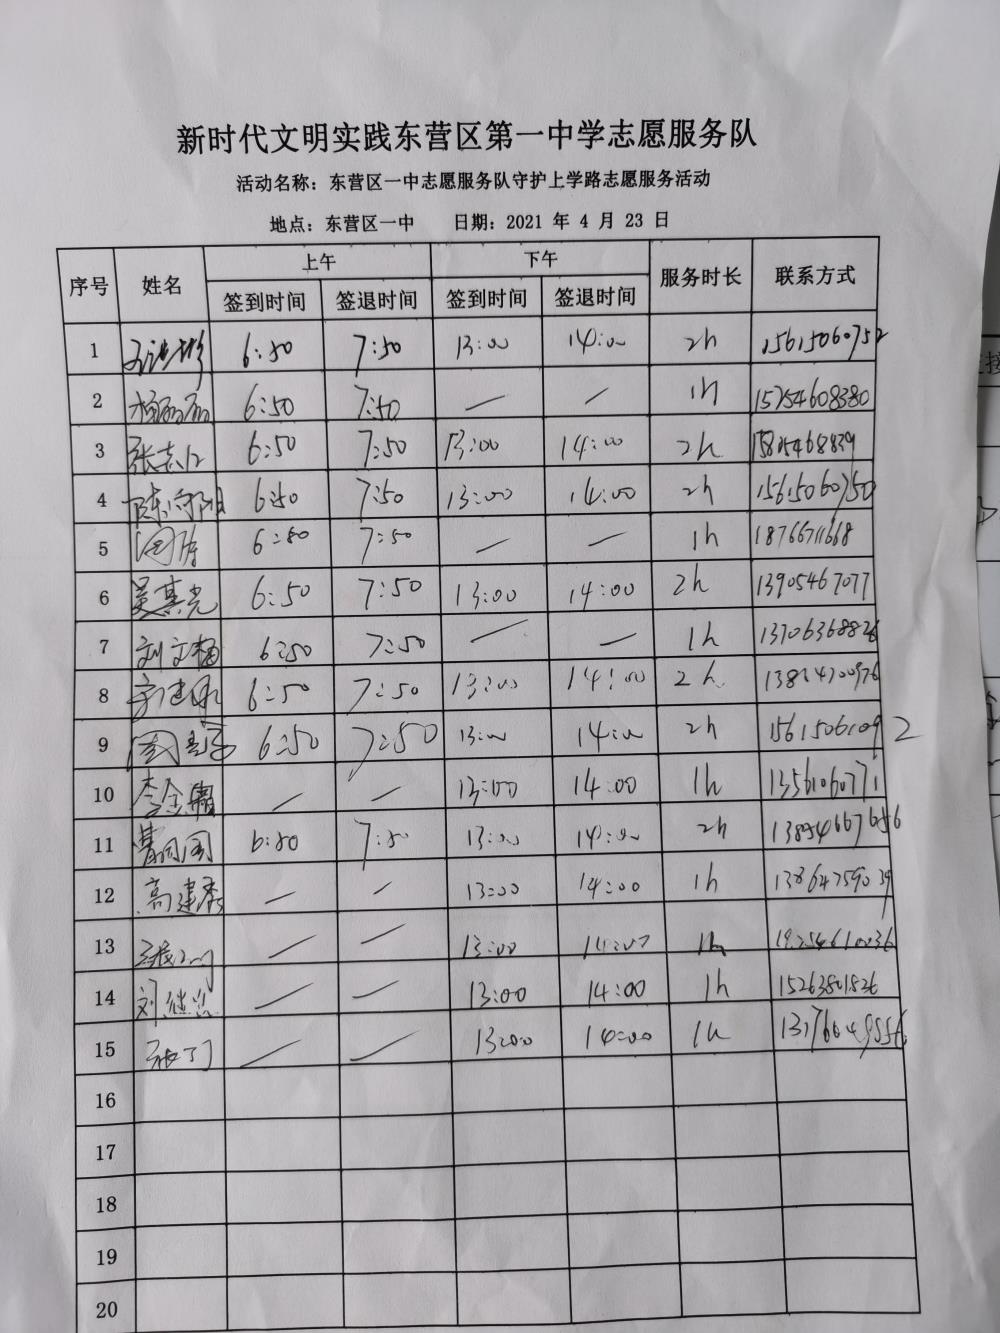 新时代文明实践东营区第一中学志愿服务队
活动名称：东营区一中志愿服务队守护上学路志愿服务活动
地点：东营区一中 日期：2021 年 4 月 23 日
序号 姓名 上午 下午 服务时长 联系方式
签到时间 签退时间 签到时间 签退时间
1 6:50 7:50 13:00 14:00 2h 15615060752
2 6:50 7:50 — — 1h 15254608380
3 张志仁 6:50 7:50 13:00 14:00 2h
4 陈向阳 6:50 7:50 13:00 14:00 2h 15615060750
5 6:50 7:50 — — 1h 18766711668
6 吴其光 6:50 7:50 13:00 14:00 2h 13905467077
7 刘文梅 6:50 7:50 — — 1h 13706368826
8 6:50 7:50 13:00 14:00 2h
9 6:50 7:50 13:00 14:00 2h 15615061092
10 — — 13:00 14:00 1h 13561060771
11 6:50 7:50 13:00 14:00 2h
12 高建秀 — — 13:00 14:00 1h 13864759039
13 — — 13:00 14:00 1h
14 — — 13:00 14:00 1h 15263801826
15 — — 13:00 14:00 1h
16
17
18
19
20